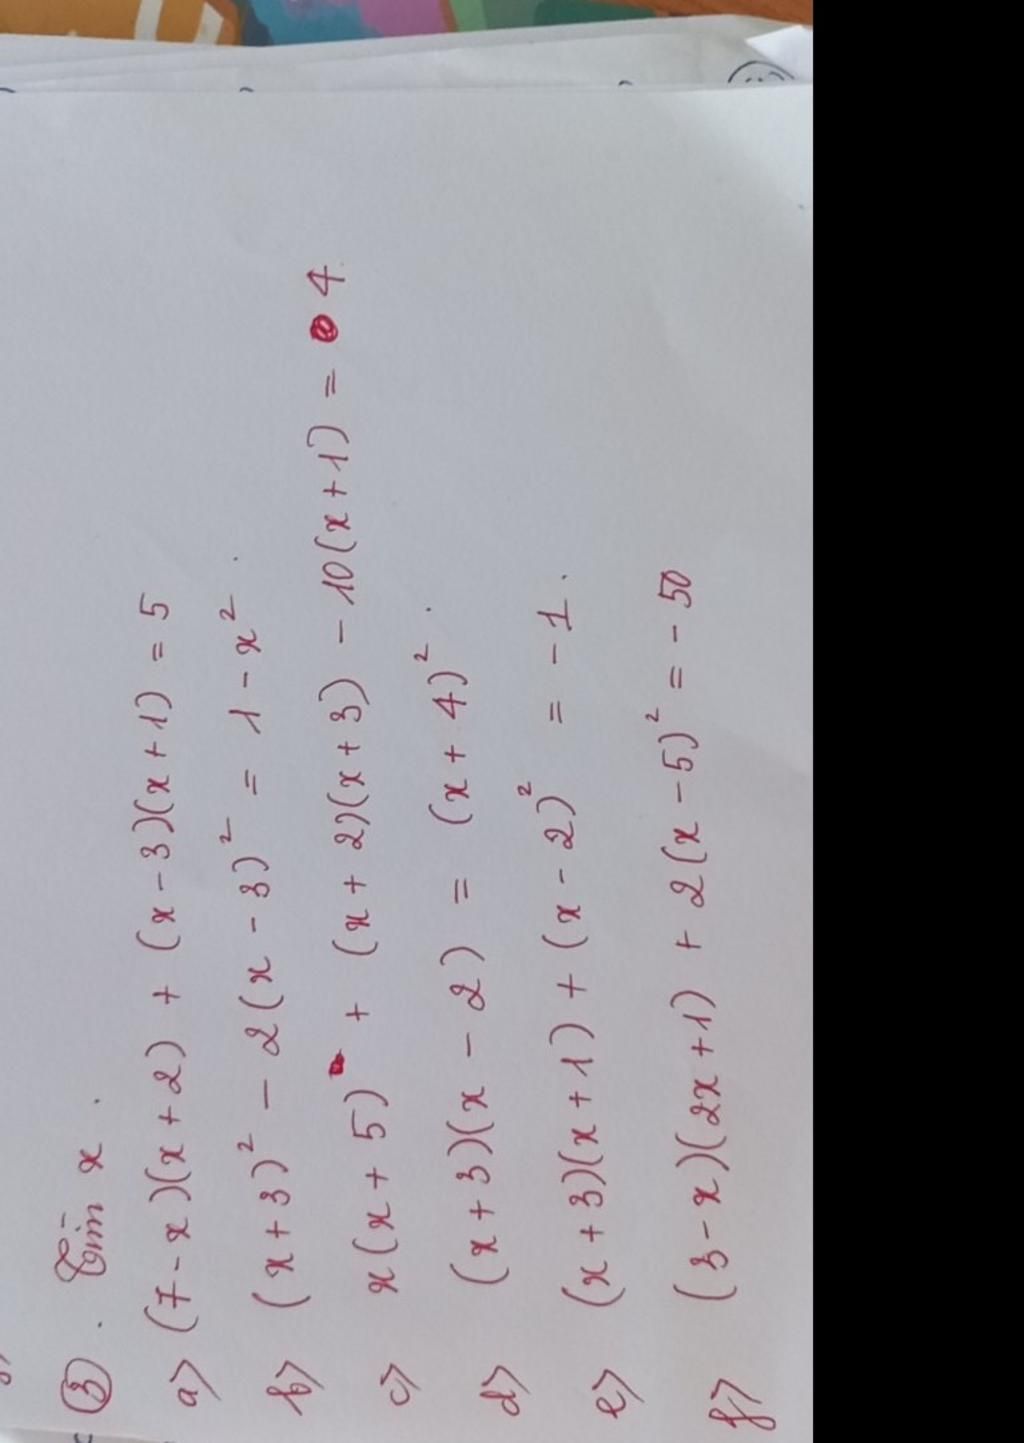 ③. Tìm x.
a) (7-x)(x+2) + (x-3)(x+1) = 5
b) (x+3)² - 2(x-3)² = 1 - x².
c) x(x+5) + (x+2)(x+3) - 10(x+1) = 4
d) (x+3)(x-2) = (x+4)².
e) (x+3)(x+1) + (x-2)² = -1.
f) (3-x)(2x+1) + 2(x-5)² = -50